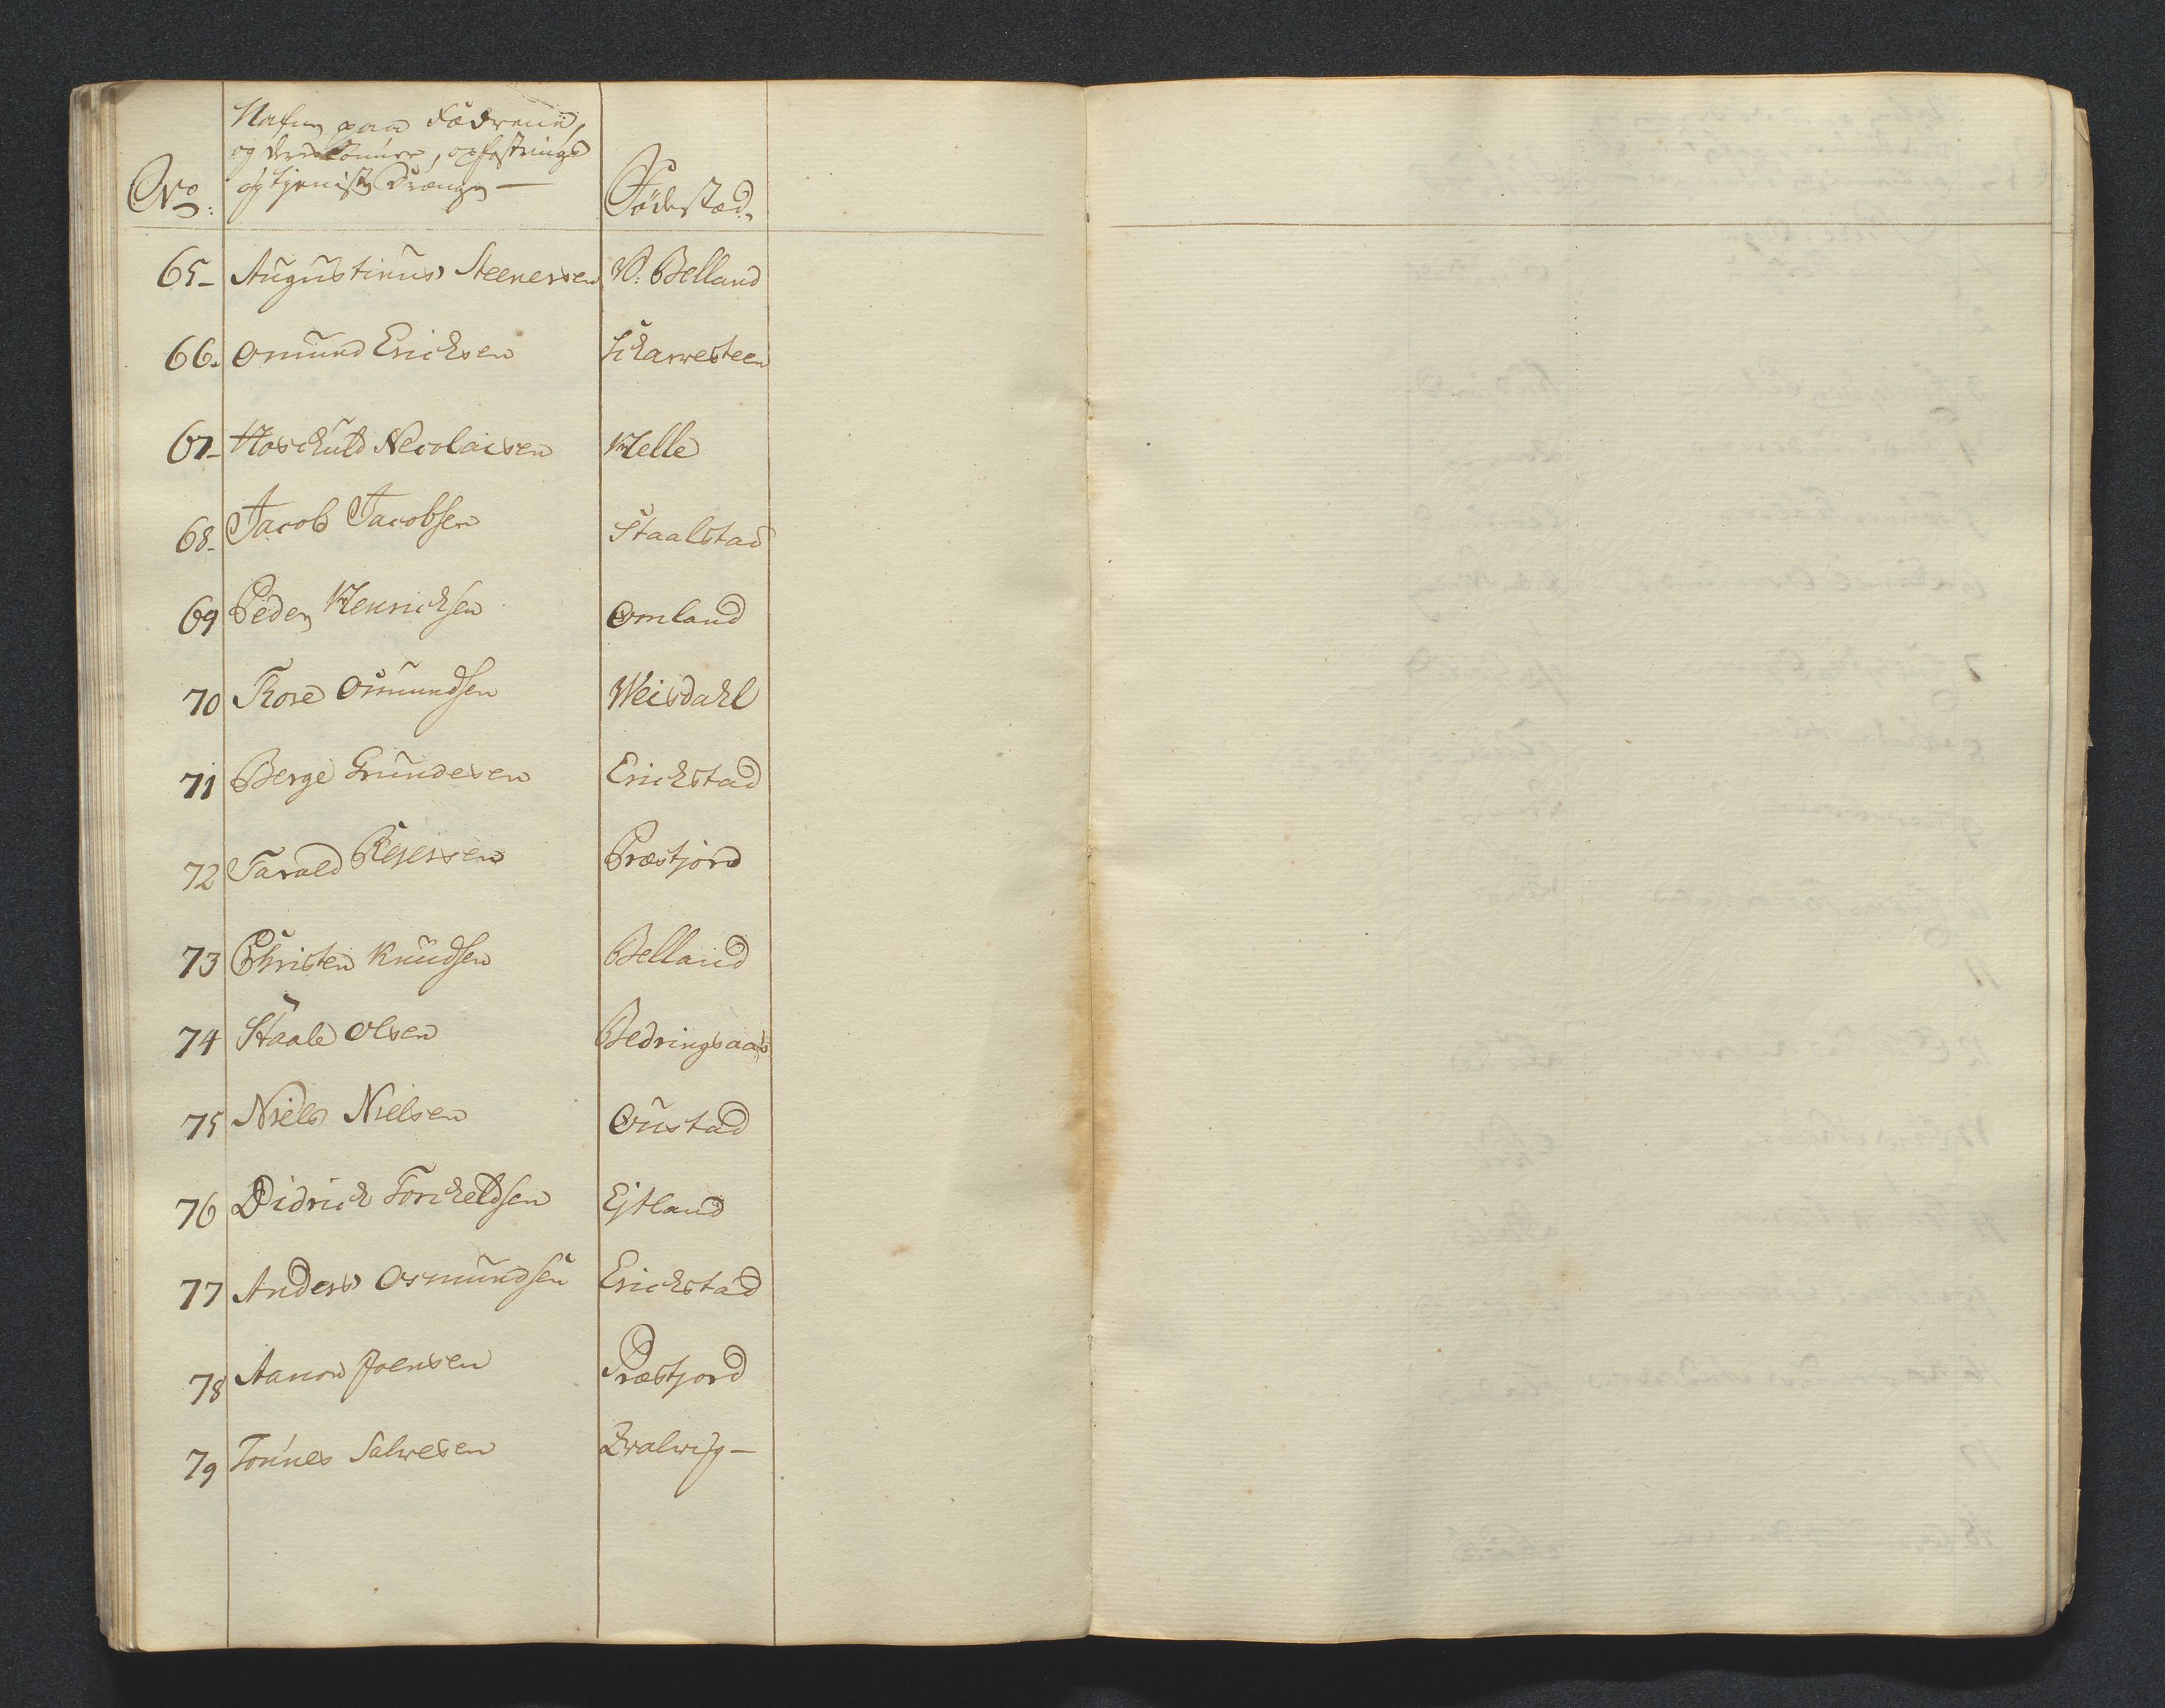 Nafn paa Fædrene,
og deres Sønner, opfostrings
og tjeniste Drænge —
No: Fødestæd.
65- Augustinus Steenersen W: Belland
66. Omund Ericksen Skarvesteen
67- Hoskuld Nicolaisen Helle
68- Jacob Jacobsen Staalstad
69 Peder Henricksen Omland
70 Thore Omundsen Weisdahl
71 Berge Gundesen Erickstad
72 Tarald Rejersen Præstjord
73 Christen Knudsen Belland
74 Staale Olsen Bedringsaas
75 Niels Nielsen Oustad
76 Didrick Torkeldsen Ejtland
77 Anders Osmundsen Erickstad
78 Aanon Joensen Præstjord
79 Tønnes Salvesen